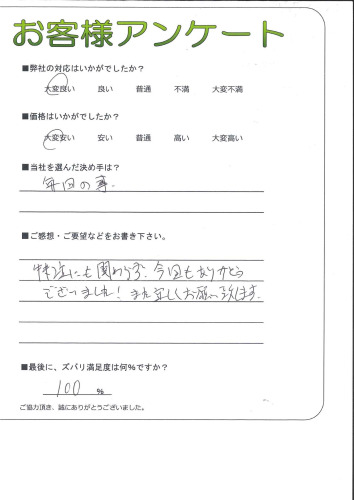 お客様アンケート
■弊社の対応はいかがでしたか？
大変良い 良い 普通 不満 大変不満
■価格はいかがでしたか？
大変安い 安い 普通 高い 大変高い
■当社を選んだ決め手は？
毎回の事.
■ご感想・ご要望などをお書き下さい。
特注にも関わらず、今回もありがとう
ございました！また宜しくお願い致します.
■最後に、ズバリ満足度は何%ですか？
100 %
ご協力頂き、誠にありがとうございました。